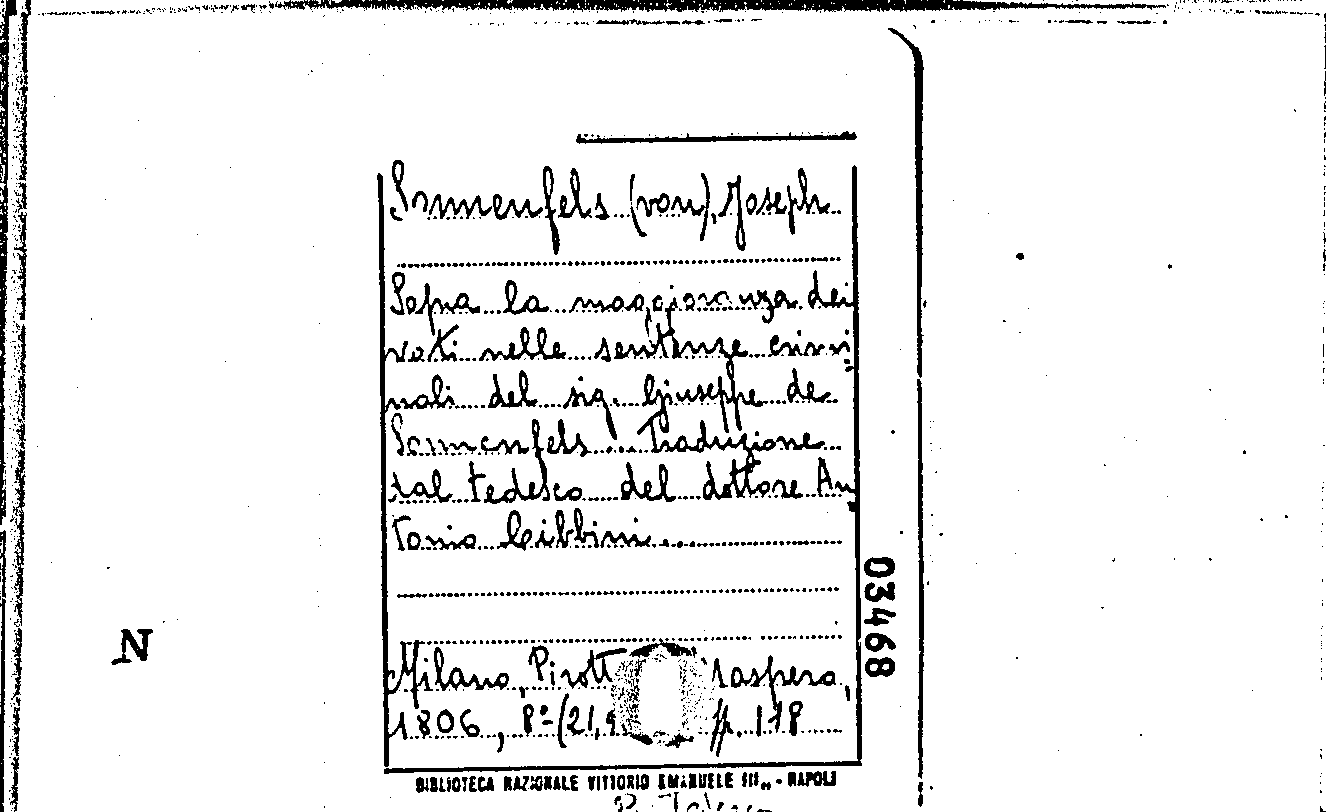 Sonnenfels (von), Joseph
Sopra la maggioranza dei
voti nelle sentenze crimi
nali del sig. Giuseppe de
Sonnenfels ... Traduzione
dal tedesco del dottore An
tonio Cibbini...
03468
N
Milano, Pirott
1806, 8º (21,
p. 118
BIBLIOTECA NAZIONALE VITTORIO EMANUELE III„ - NAPOLI